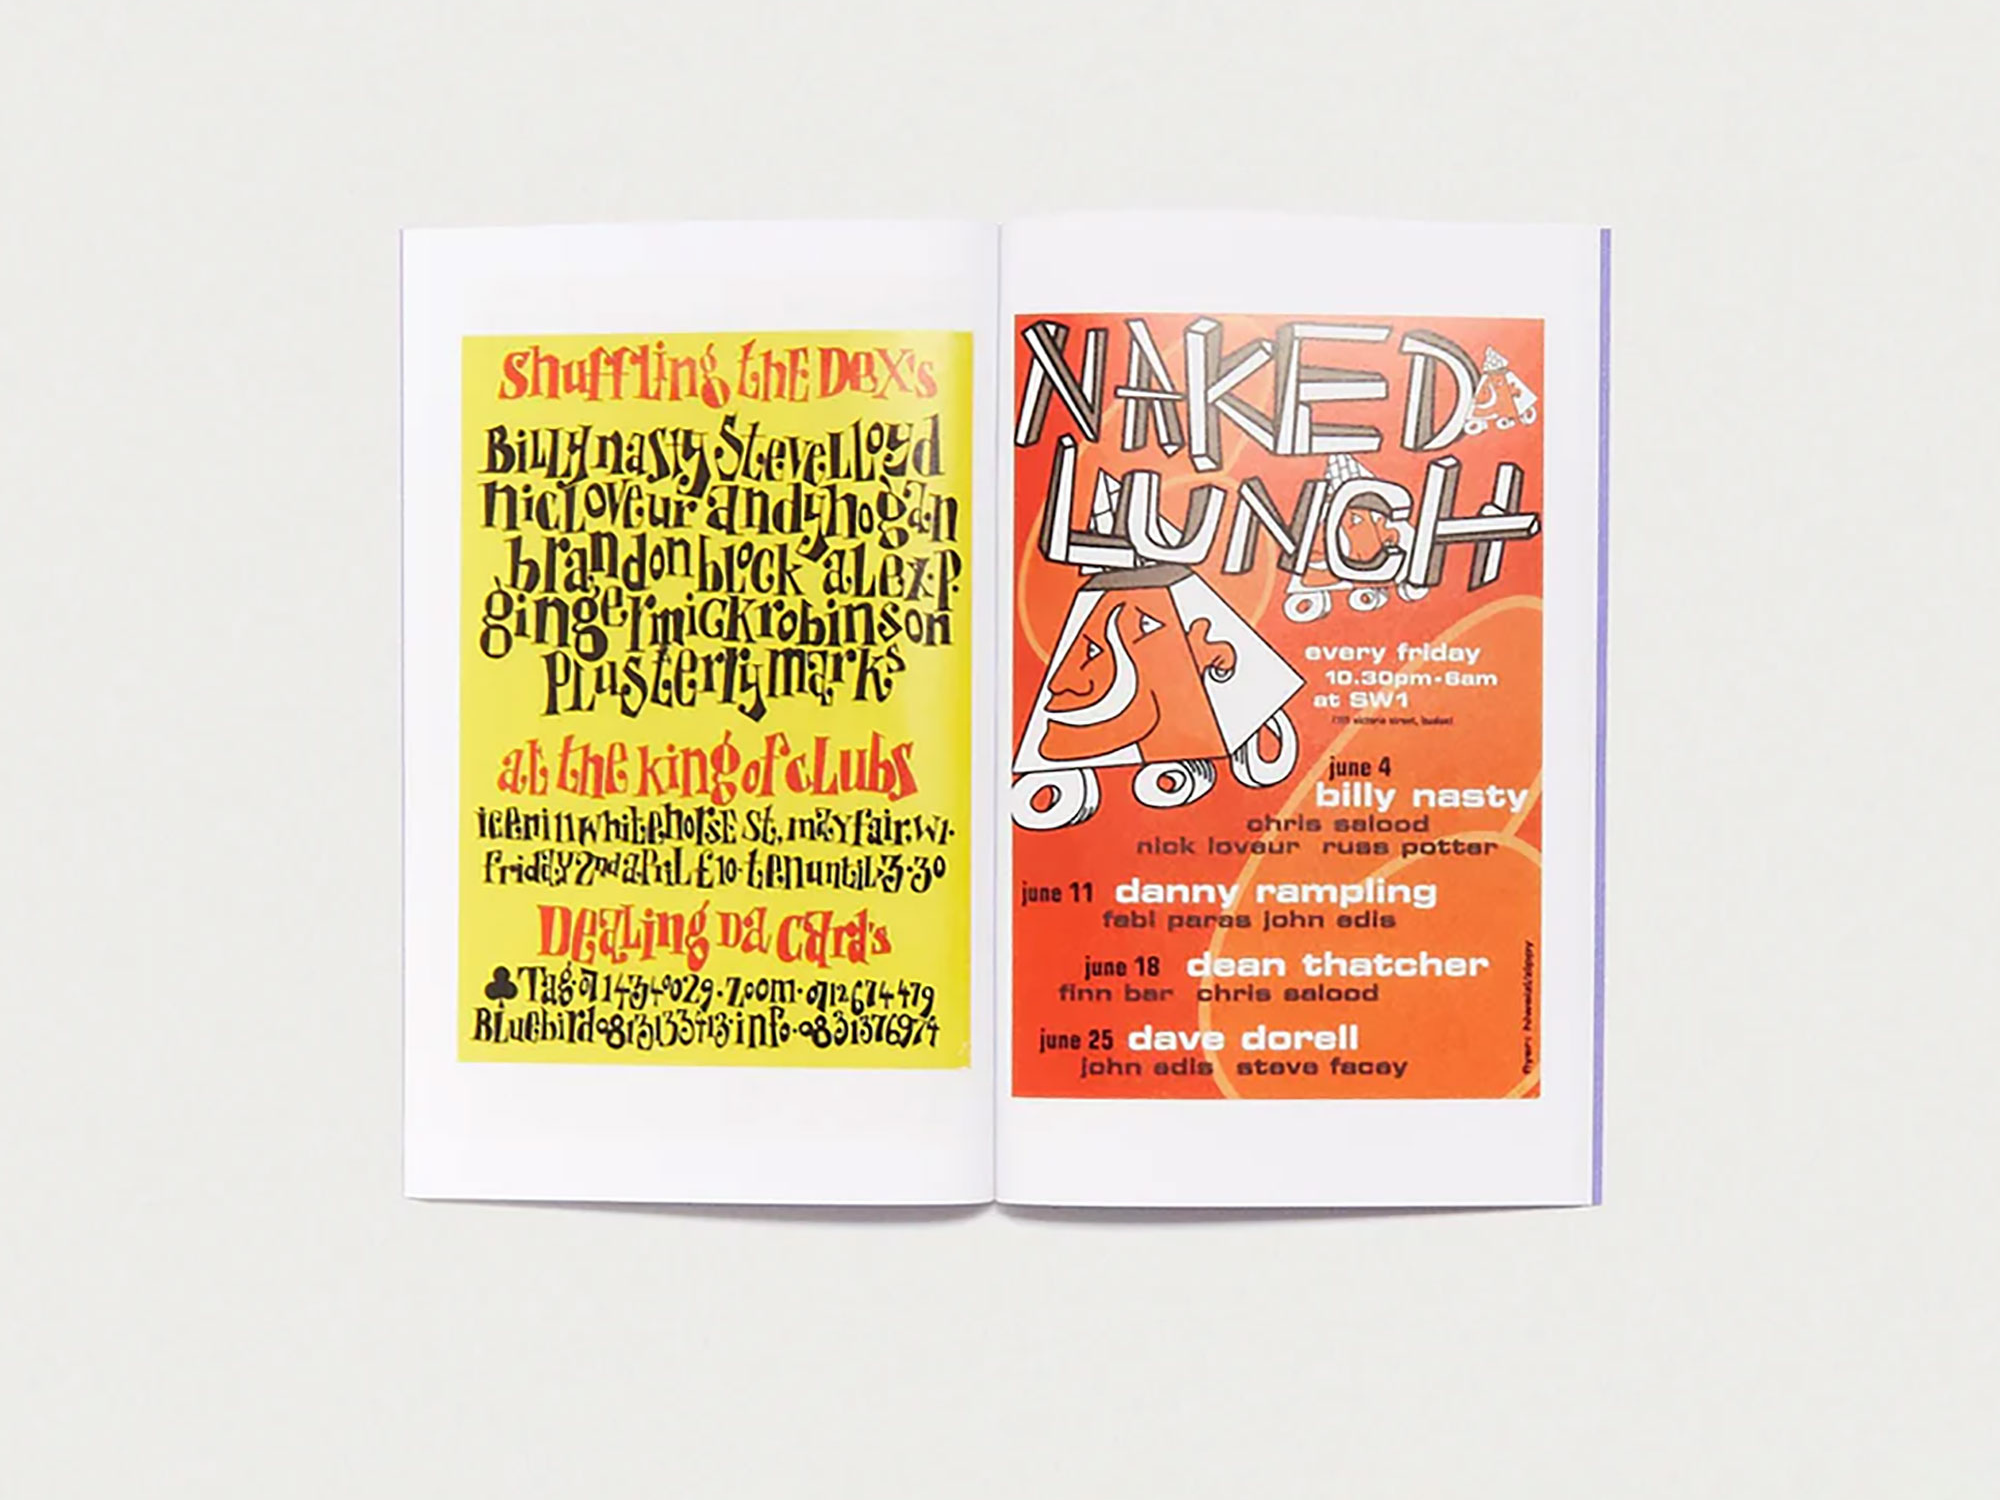 Shuffling the Dex's
Billy nasty Steve Lloyd
nic Loveur andy hogan
brandon block alex.p.
ginger mick robinson
Plus terry marks
at the king of clubs
iceni 11 whitehorse St, mayfair. W1.
friday 2nd april £10. ten until 3.30
Dealing Da Card's
Tag. 071 434 0029. Zoom. 071 2674479
Bluebird 081 3133413. info. 0831 376974
NAKED
LUNCH
every friday
10.30pm-6am
at SW1
june 4
billy nasty
chris salood
nick loveur russ potter
june 11 danny rampling
febl paras john edis
june 18 dean thatcher
finn bar chris salood
june 25 dave dorell
john edis steve facey